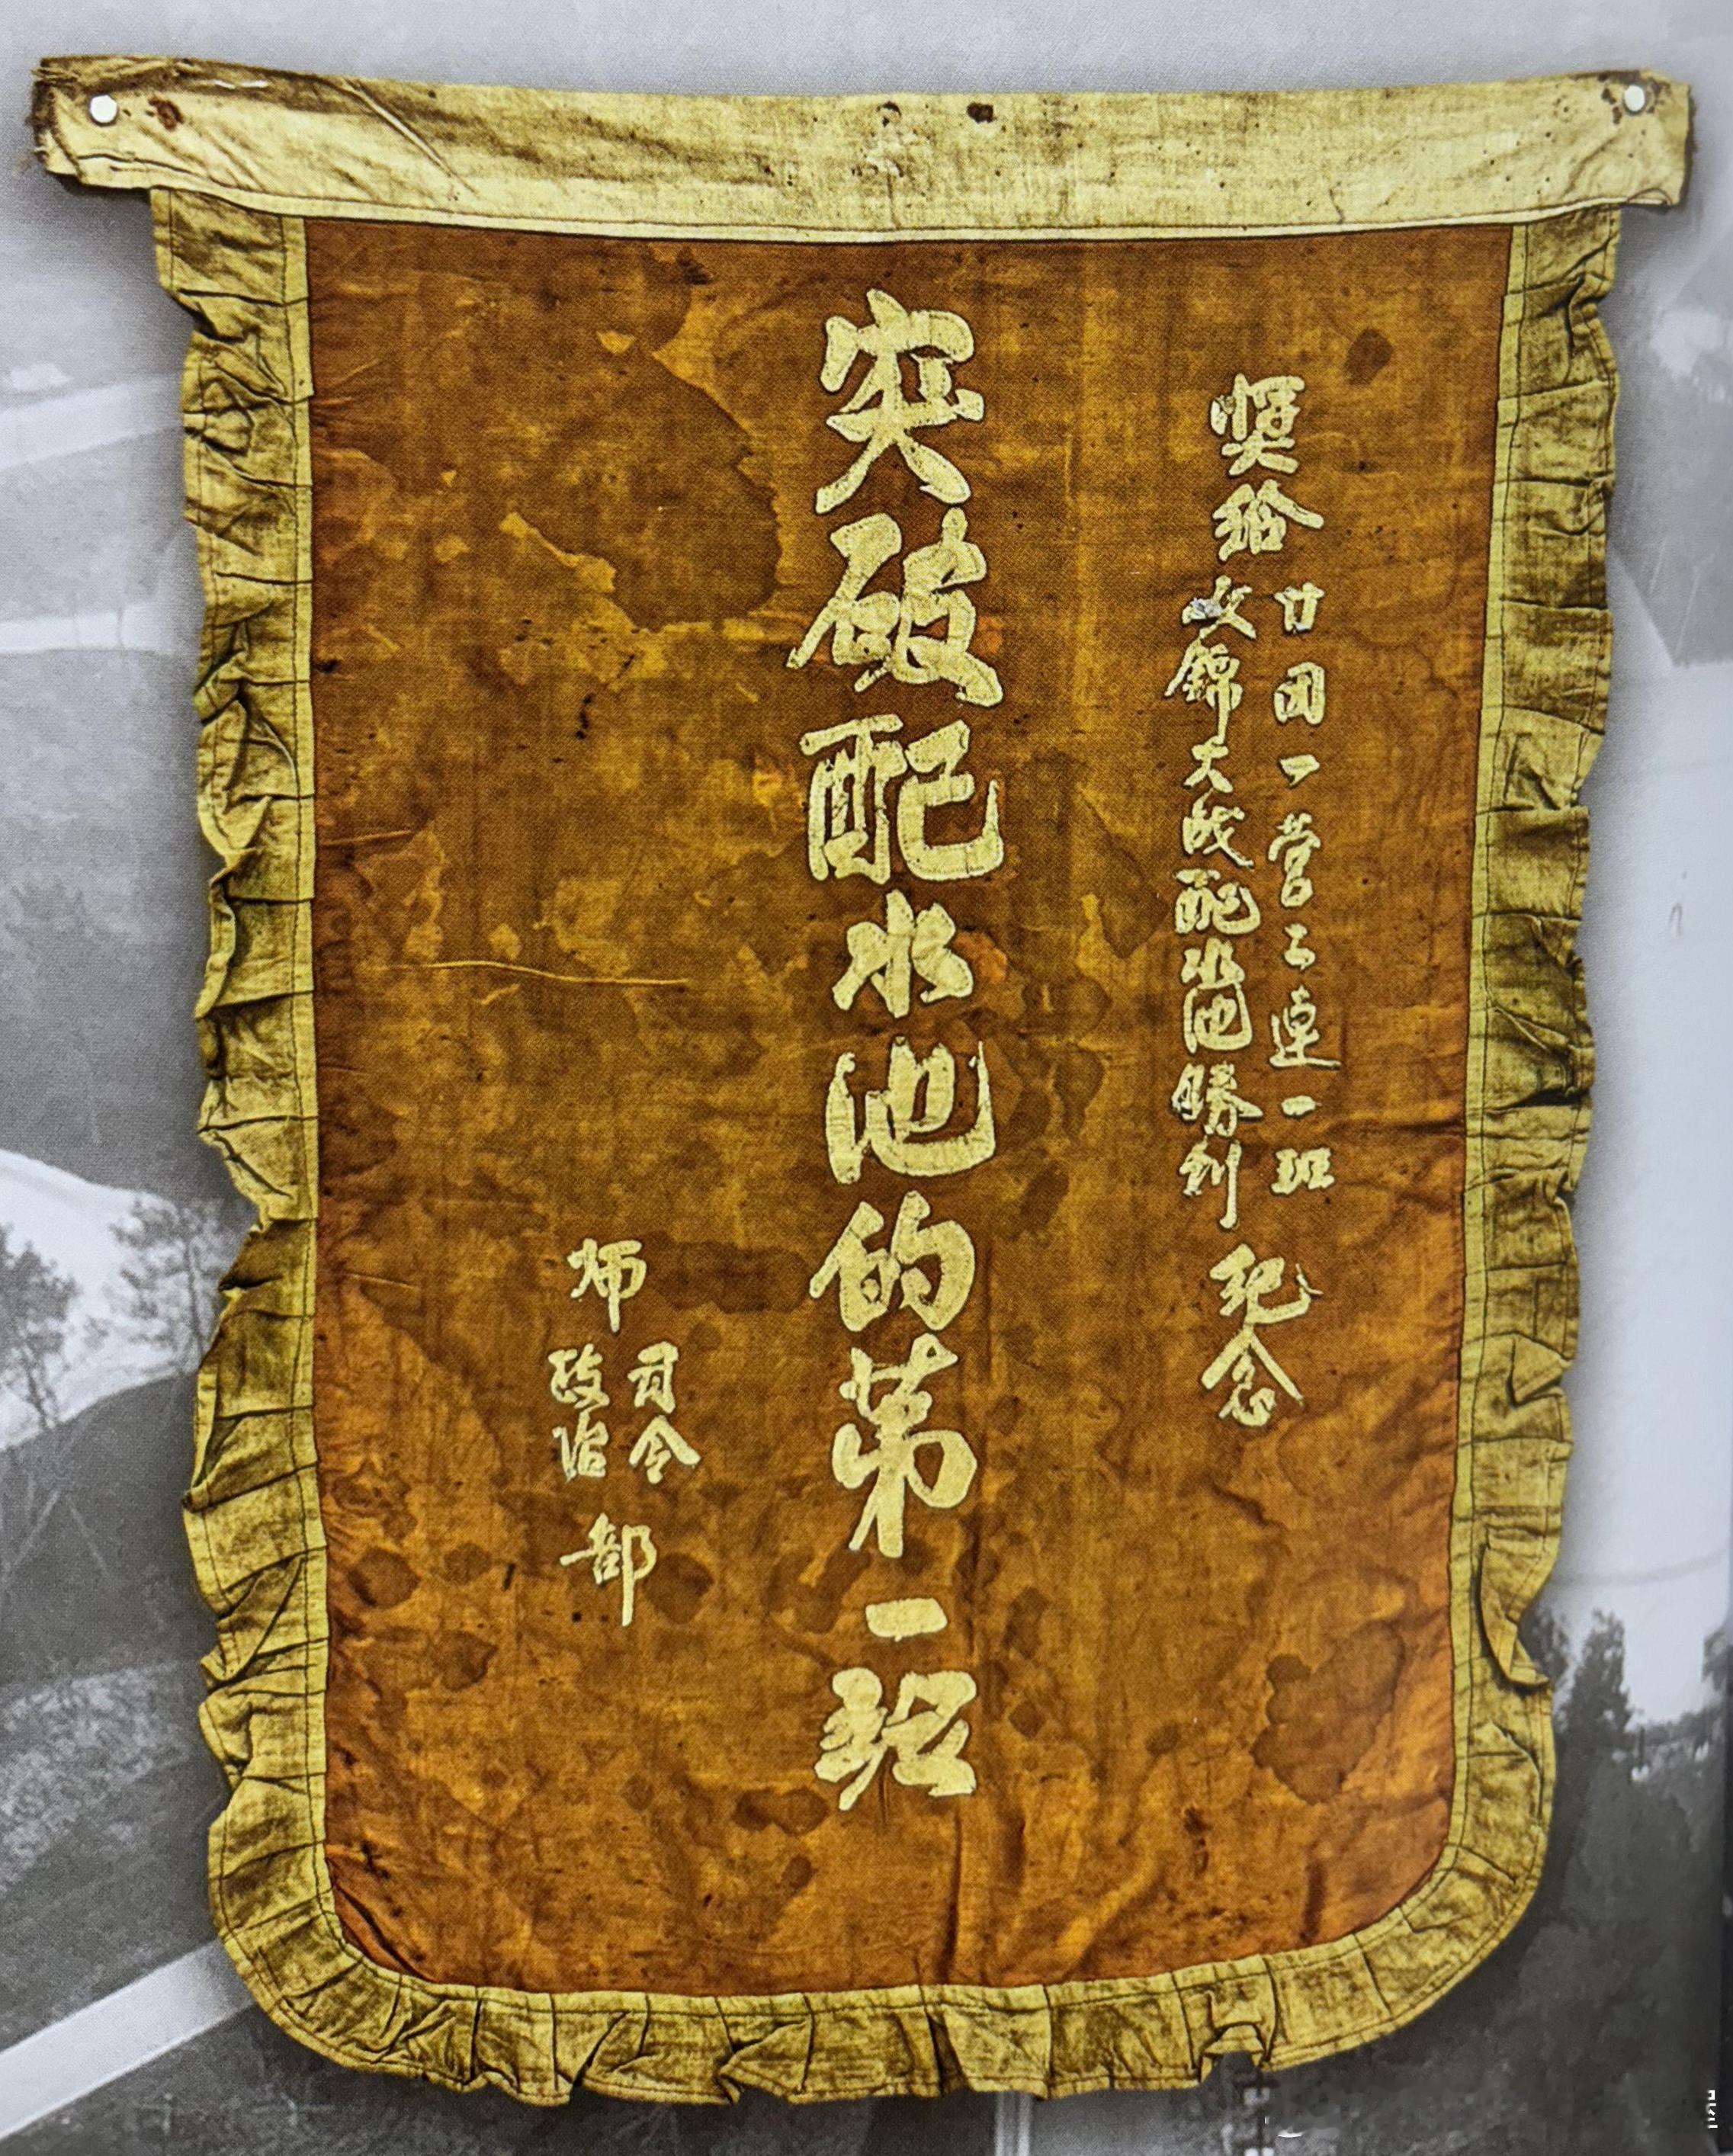 奬给
廿团一营二连一班
攻錦大战配水池勝利
纪念
突破配水池的第一班
师
司令
政治
部